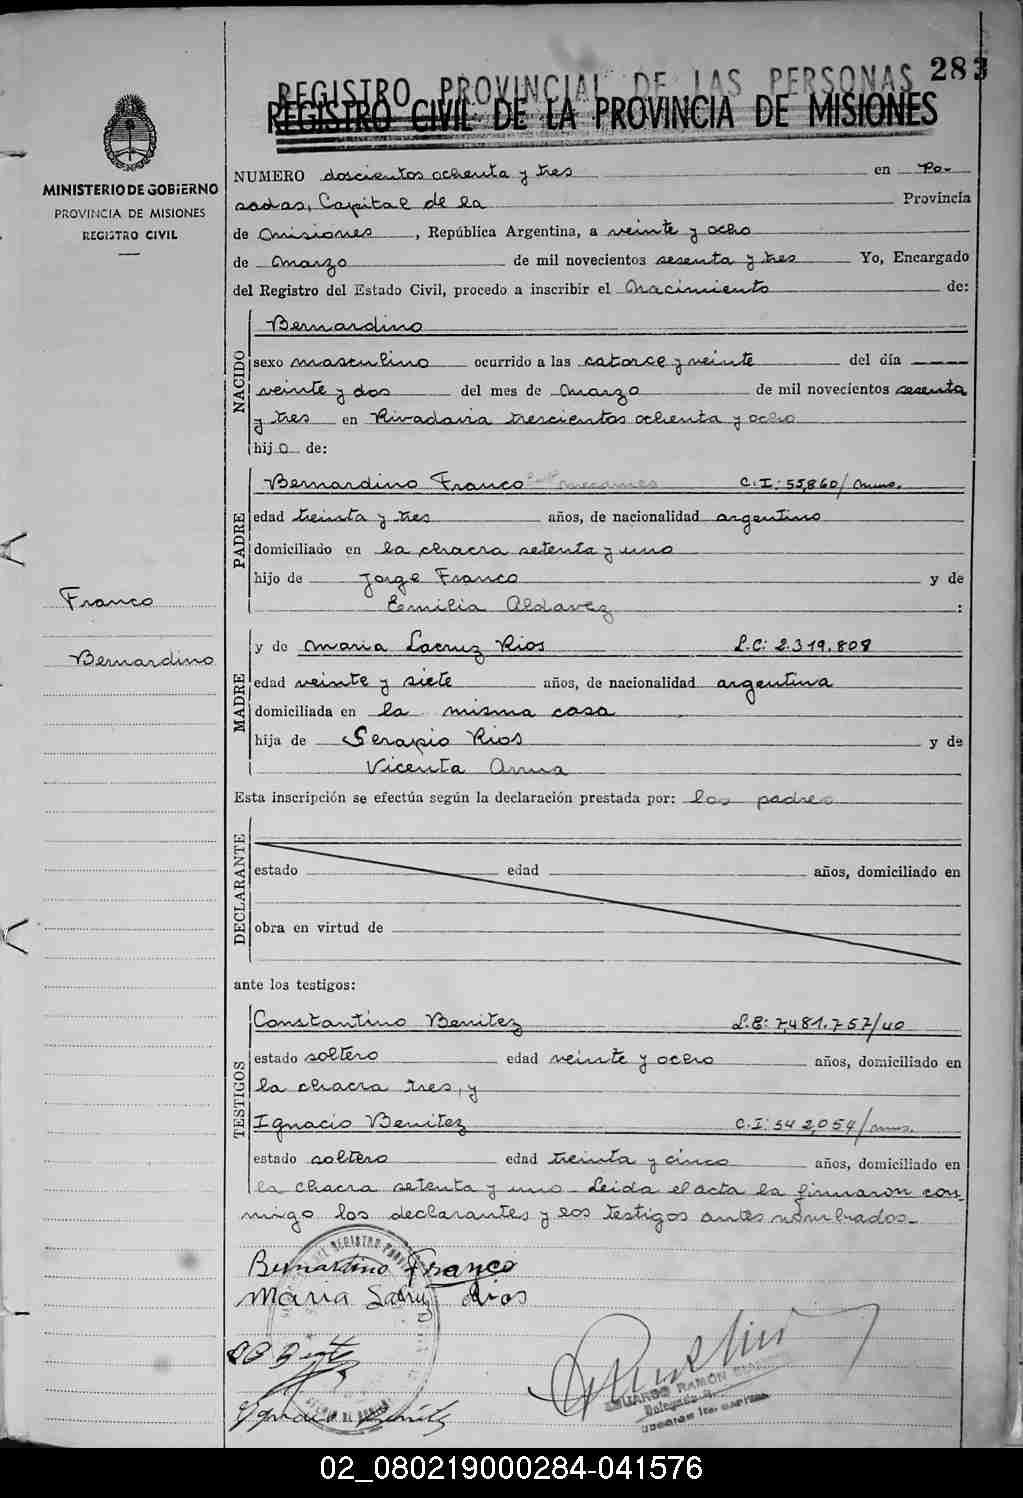 283
REGISTRO PROVINCIAL DE LAS PERSONAS
REGISTRO CIVIL DE LA PROVINCIA DE MISIONES
MINISTERIO DE GOBIERNO
PROVINCIA DE MISIONES
REGISTRO CIVIL
NUMERO doscientos ochenta y tres en Po-
sadas, Capital de la Provincia
de Misiones, República Argentina, a veinte y ocho
de Marzo de mil novecientos sesenta y tres Yo, Encargado
del Registro del Estado Civil, procedo a inscribir el Nacimiento de:
NACIDO
Bernardino
sexo masculino ocurrido a las catorce y veinte del día
veinte y dos del mes de Marzo de mil novecientos sesenta
y tres en Rivadavia trescientos ochenta y ocho
hijo de:
PADRE
Bernardino Franco C.I: 55,860/Mnes.
edad treinta y tres años, de nacionalidad argentino
domiciliado en la chacra setenta y uno
hijo de Jorge Franco y de
Emilia Aldavez :
Franco
Bernardino
MADRE
y de Maria Lacruz Rios L.C: 2.319.808
edad veinte y siete años, de nacionalidad argentina
domiciliada en la misma casa
hija de Serapio Rios y de
Vicenta
Esta inscripción se efectúa según la declaración prestada por: los padres
DECLARANTE
estado edad años, domiciliado en
obra en virtud de
ante los testigos:
TESTIGOS
Constantino Benitez L.E: 7,481.757/40
estado soltero edad veinte y ocho años, domiciliado en
la chacra tres, y
Ignacio Benitez C.I: 342,054/Mnes.
estado soltero edad treinta y cinco años, domiciliado en
la chacra setenta y uno Leida el acta la firmaron con-
migo los declarantes y los testigos antes nombrados.-
Bernardino Franco
Maria Rios
Ignacio Benitez
EDUARDO RAMÓN
Delegado
02_080219000284-041576